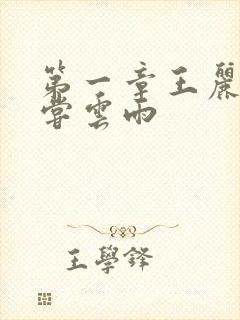 第一章王麗
嘗雲雨
王學鋒